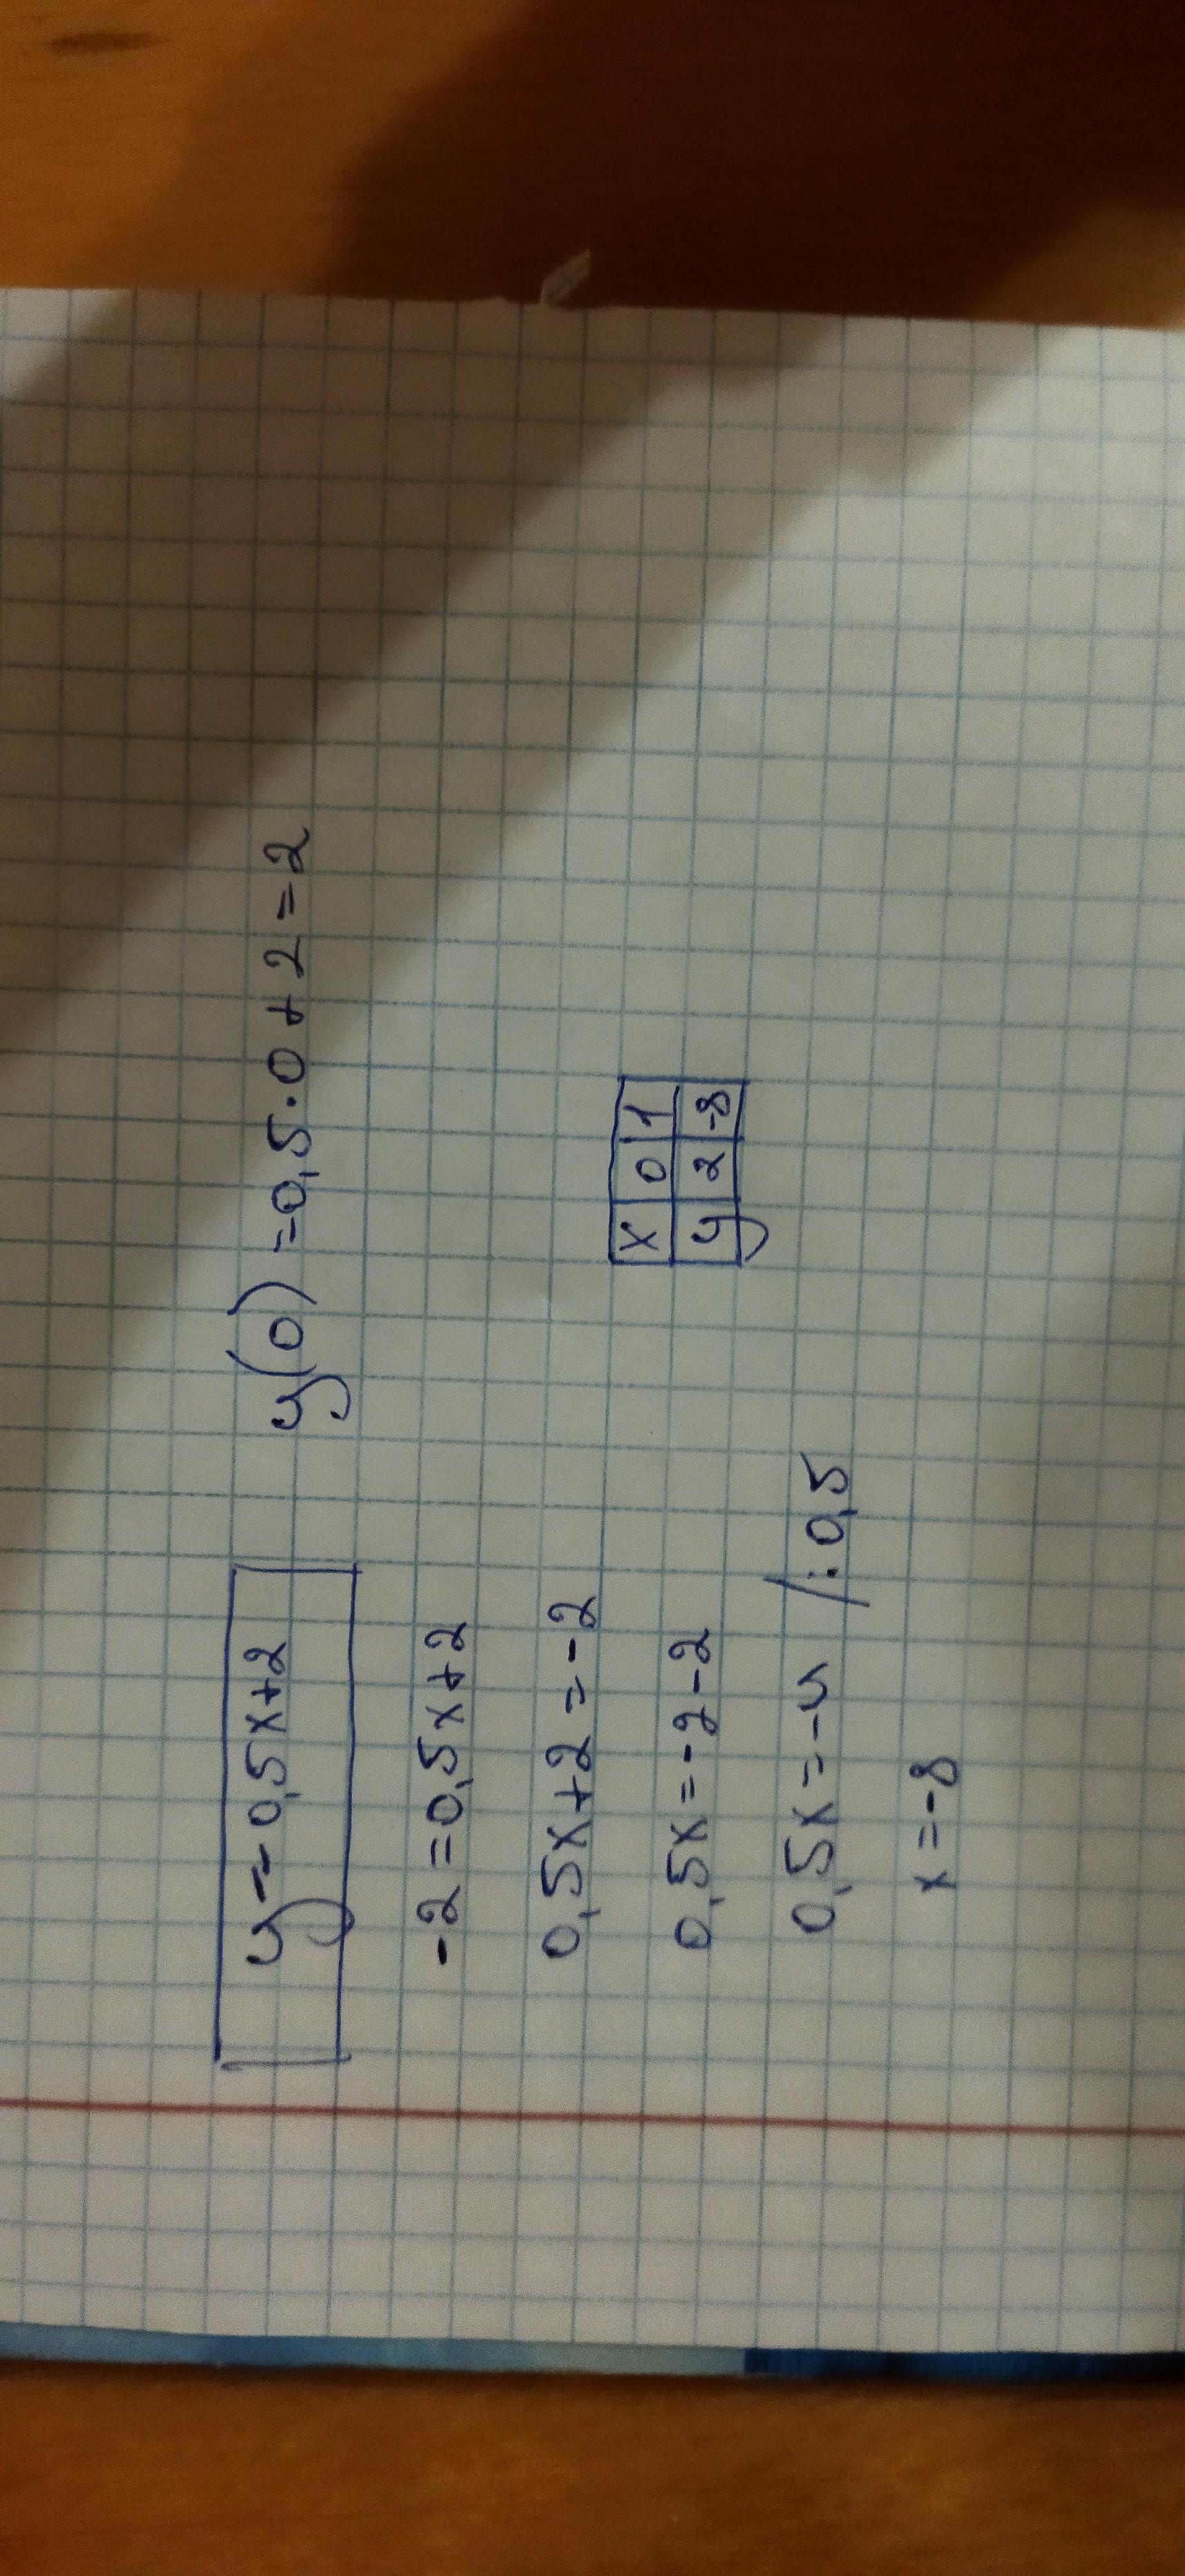 y = 0,5x+2
y(0) = 0,5·0+2=2
-2=0,5x+2
0,5x+2=-2
0,5x=-2-2
0,5x=-4 /:0,5
x=-8
x 0 1
y 2 -8